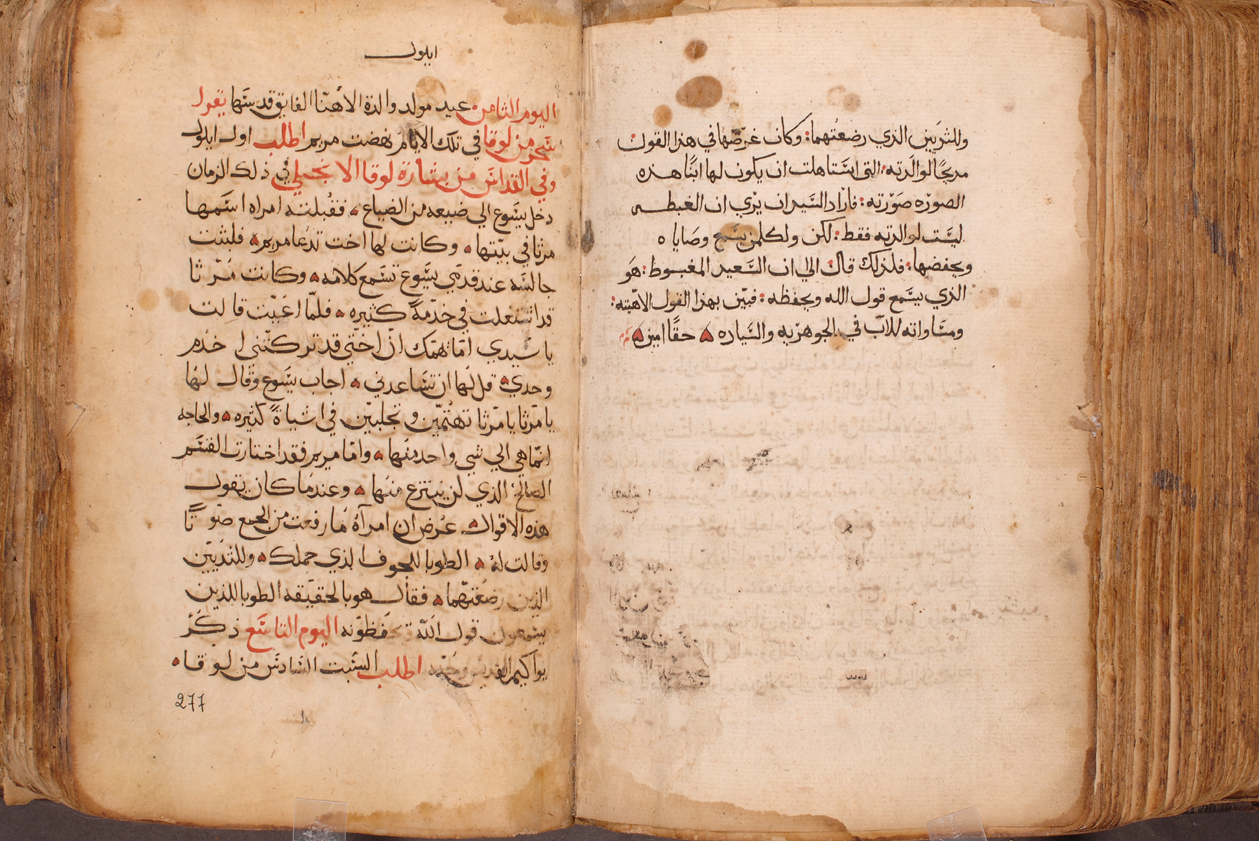 وللثديين الذي رضعتهما: وكان غرضها في هذا القول
مديحًا لوالدته: التي استاهلت ان يكون لها ابنًا هذه
الصوره صورته: فازاد السيد ان يري ان الغبطه
ليست لوالدته فقط: لكن ولكلمن يسمع وصاياه
ويحفضها: فلذلك قال الي ان السعيد المغبوط: هو
الذي يسمع قول الله ويحفظه: فبين بهذا القول الاهيته:
ومساواته للاب في الجوهريه والسياده حقًا امين
ايلول
اليوم الثامن عيد مولد والدة الاهنا الفايق قدسها يقول
سحر من لوقا في تلك الايام نهضت مريم اطلب اول ايلول
وفي القداس من بشارة لوقا الانجيلي في ذلك الزمان
دخل يسوع الي ضيعه من الضياع فقبلته امراه اسمها
مرثا في بيتها وكانت لها اخت تدعا مريم فلبثت
جالسه عند قدمي يسوع تسمع كلامه وكانت مرثا
قد اشتغلت في خدمة كثيره فلما اعيت قالت
يا سيدي اما تهمك ان اختي قد تركتني اخدم
وحدي قل لها ان تساعدني اجاب يسوع وقال لها
يا مرثا يا مرثا تهتمين وتجلبين في اشياة كثيره والحاجه
انما هي الي شي واحد منها واما مريم فقد اختارت القسم
الصالح الذي لن ينتزع منها وعندما كان يقول
هذه الاقوال عرض ان امرآة ما رفعت من الجمع صوتًا
وقالت له الطوبا للجوف الذي حملك وللثديين
الذين رضعتهما فقال هو بالحقيقه الطوبا للذين
يسمعون قول الله ويحفظونه اليوم التاسع ذكر
يواكيم القديس وحنه اطلب السبت السادس من لوقا
277